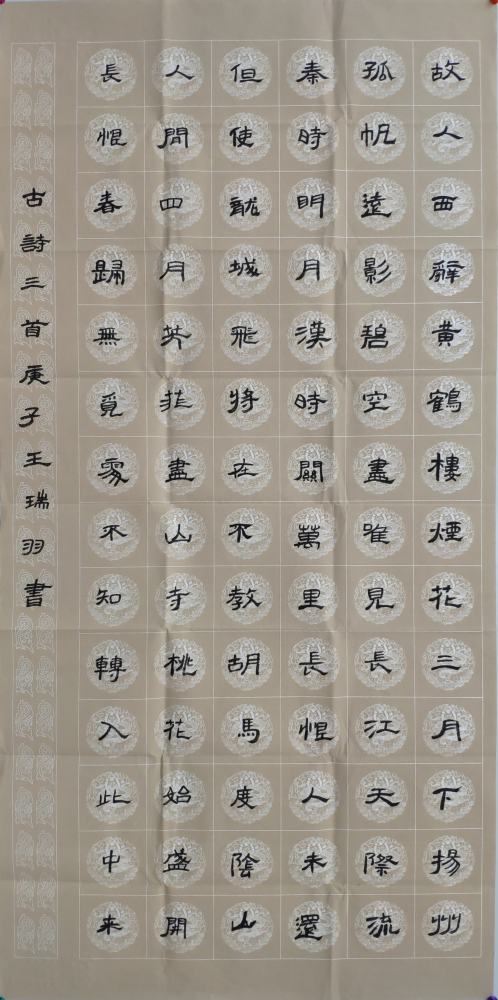 故人西辭黃鶴樓煙花三月下揚州
孤帆遠影碧空盡唯見長江天際流
秦時明月漢時關萬里長恨人未還
但使龍城飛將在不教胡馬度陰山
人間四月芳菲盡山寺桃花始盛開
長恨春歸無覓處不知轉入此中來
古詩三首庚子王瑞羽書